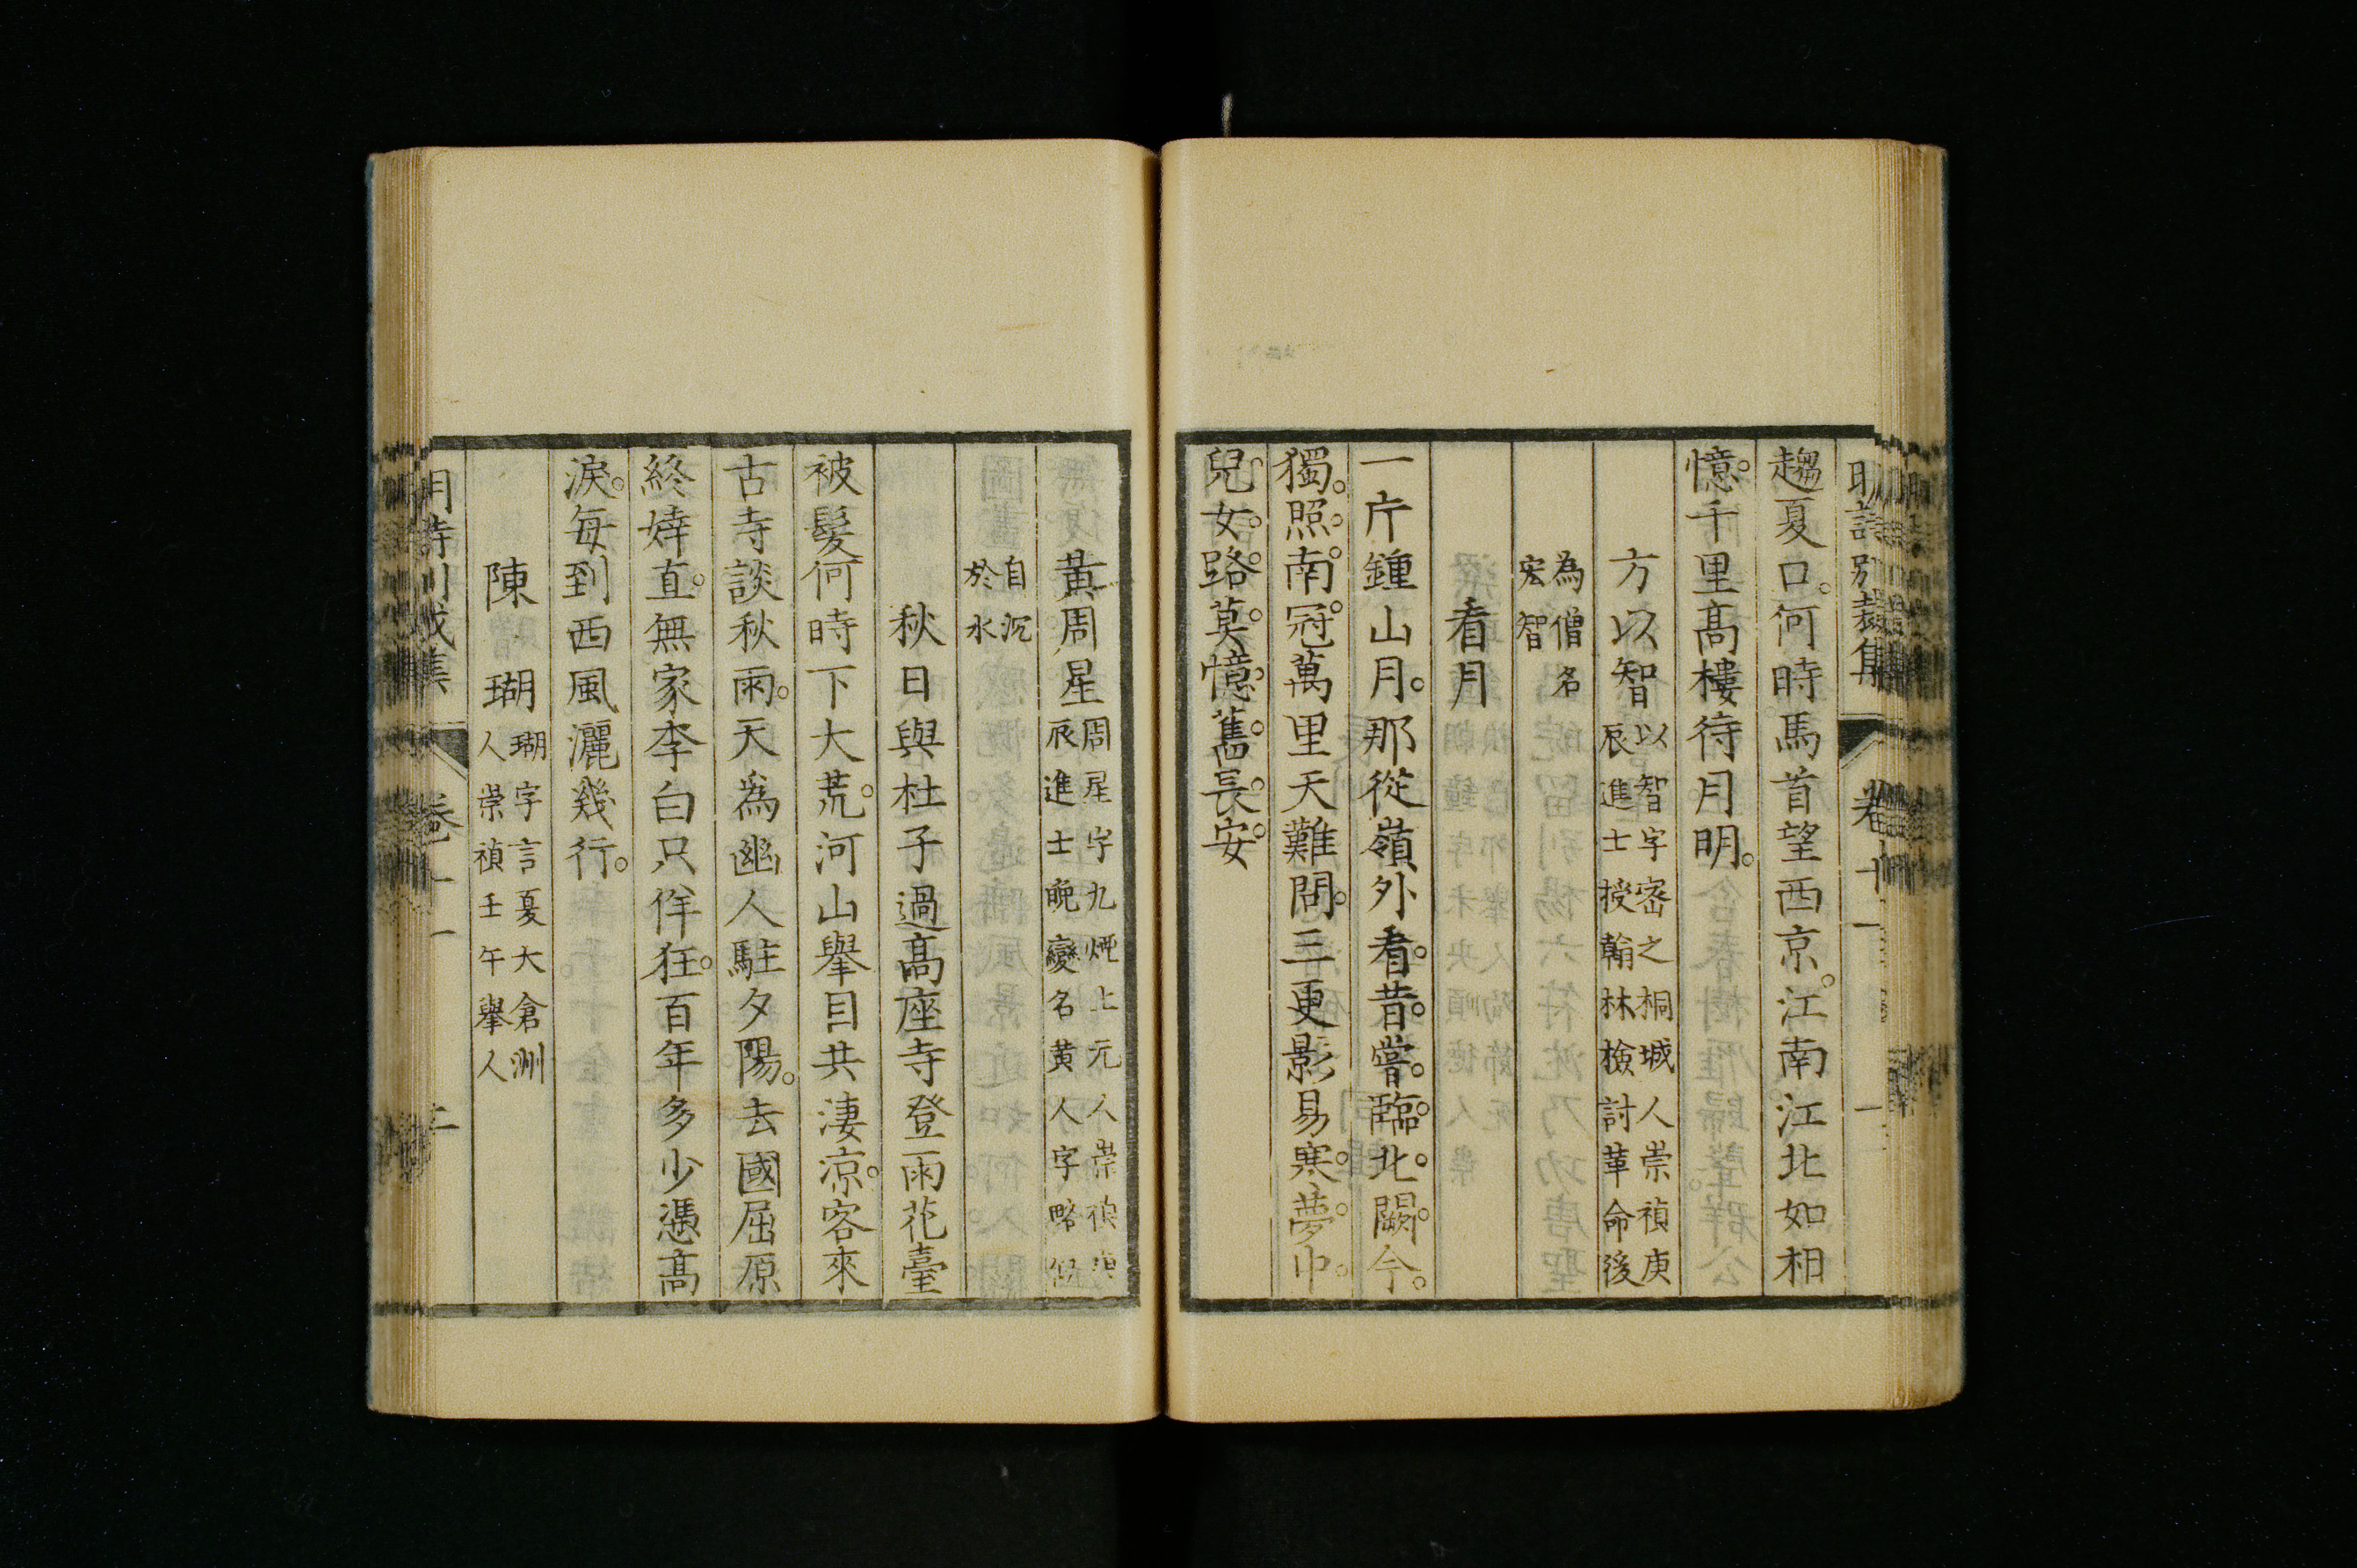 明詩別裁集 卷十一
趨夏口何時馬首望西京江南江北如相
憶千里高樓待月明
方以智以智字密之桐城人崇禎庚
辰進士授翰林檢討革命後
為僧名
宏智
看月
一片鍾山月那從嶺外看昔嘗臨北闕今
獨照南冠萬里天難問三更影易寒夢中
兒女路莫憶舊長安
黃周星周星字九煙上元人崇禎庚
辰進士晚變名黄人字略似
自沉
於水
秋日與杜子過高座寺登雨花臺
被髮何時下大荒河山舉目共淒涼客來
古寺談秋雨天為幽人駐夕陽去國屈原
終婞直無家李白只佯狂百年多少憑高
淚每到西風灑幾行
陳瑚瑚字言夏大倉州
人崇禎壬午舉人